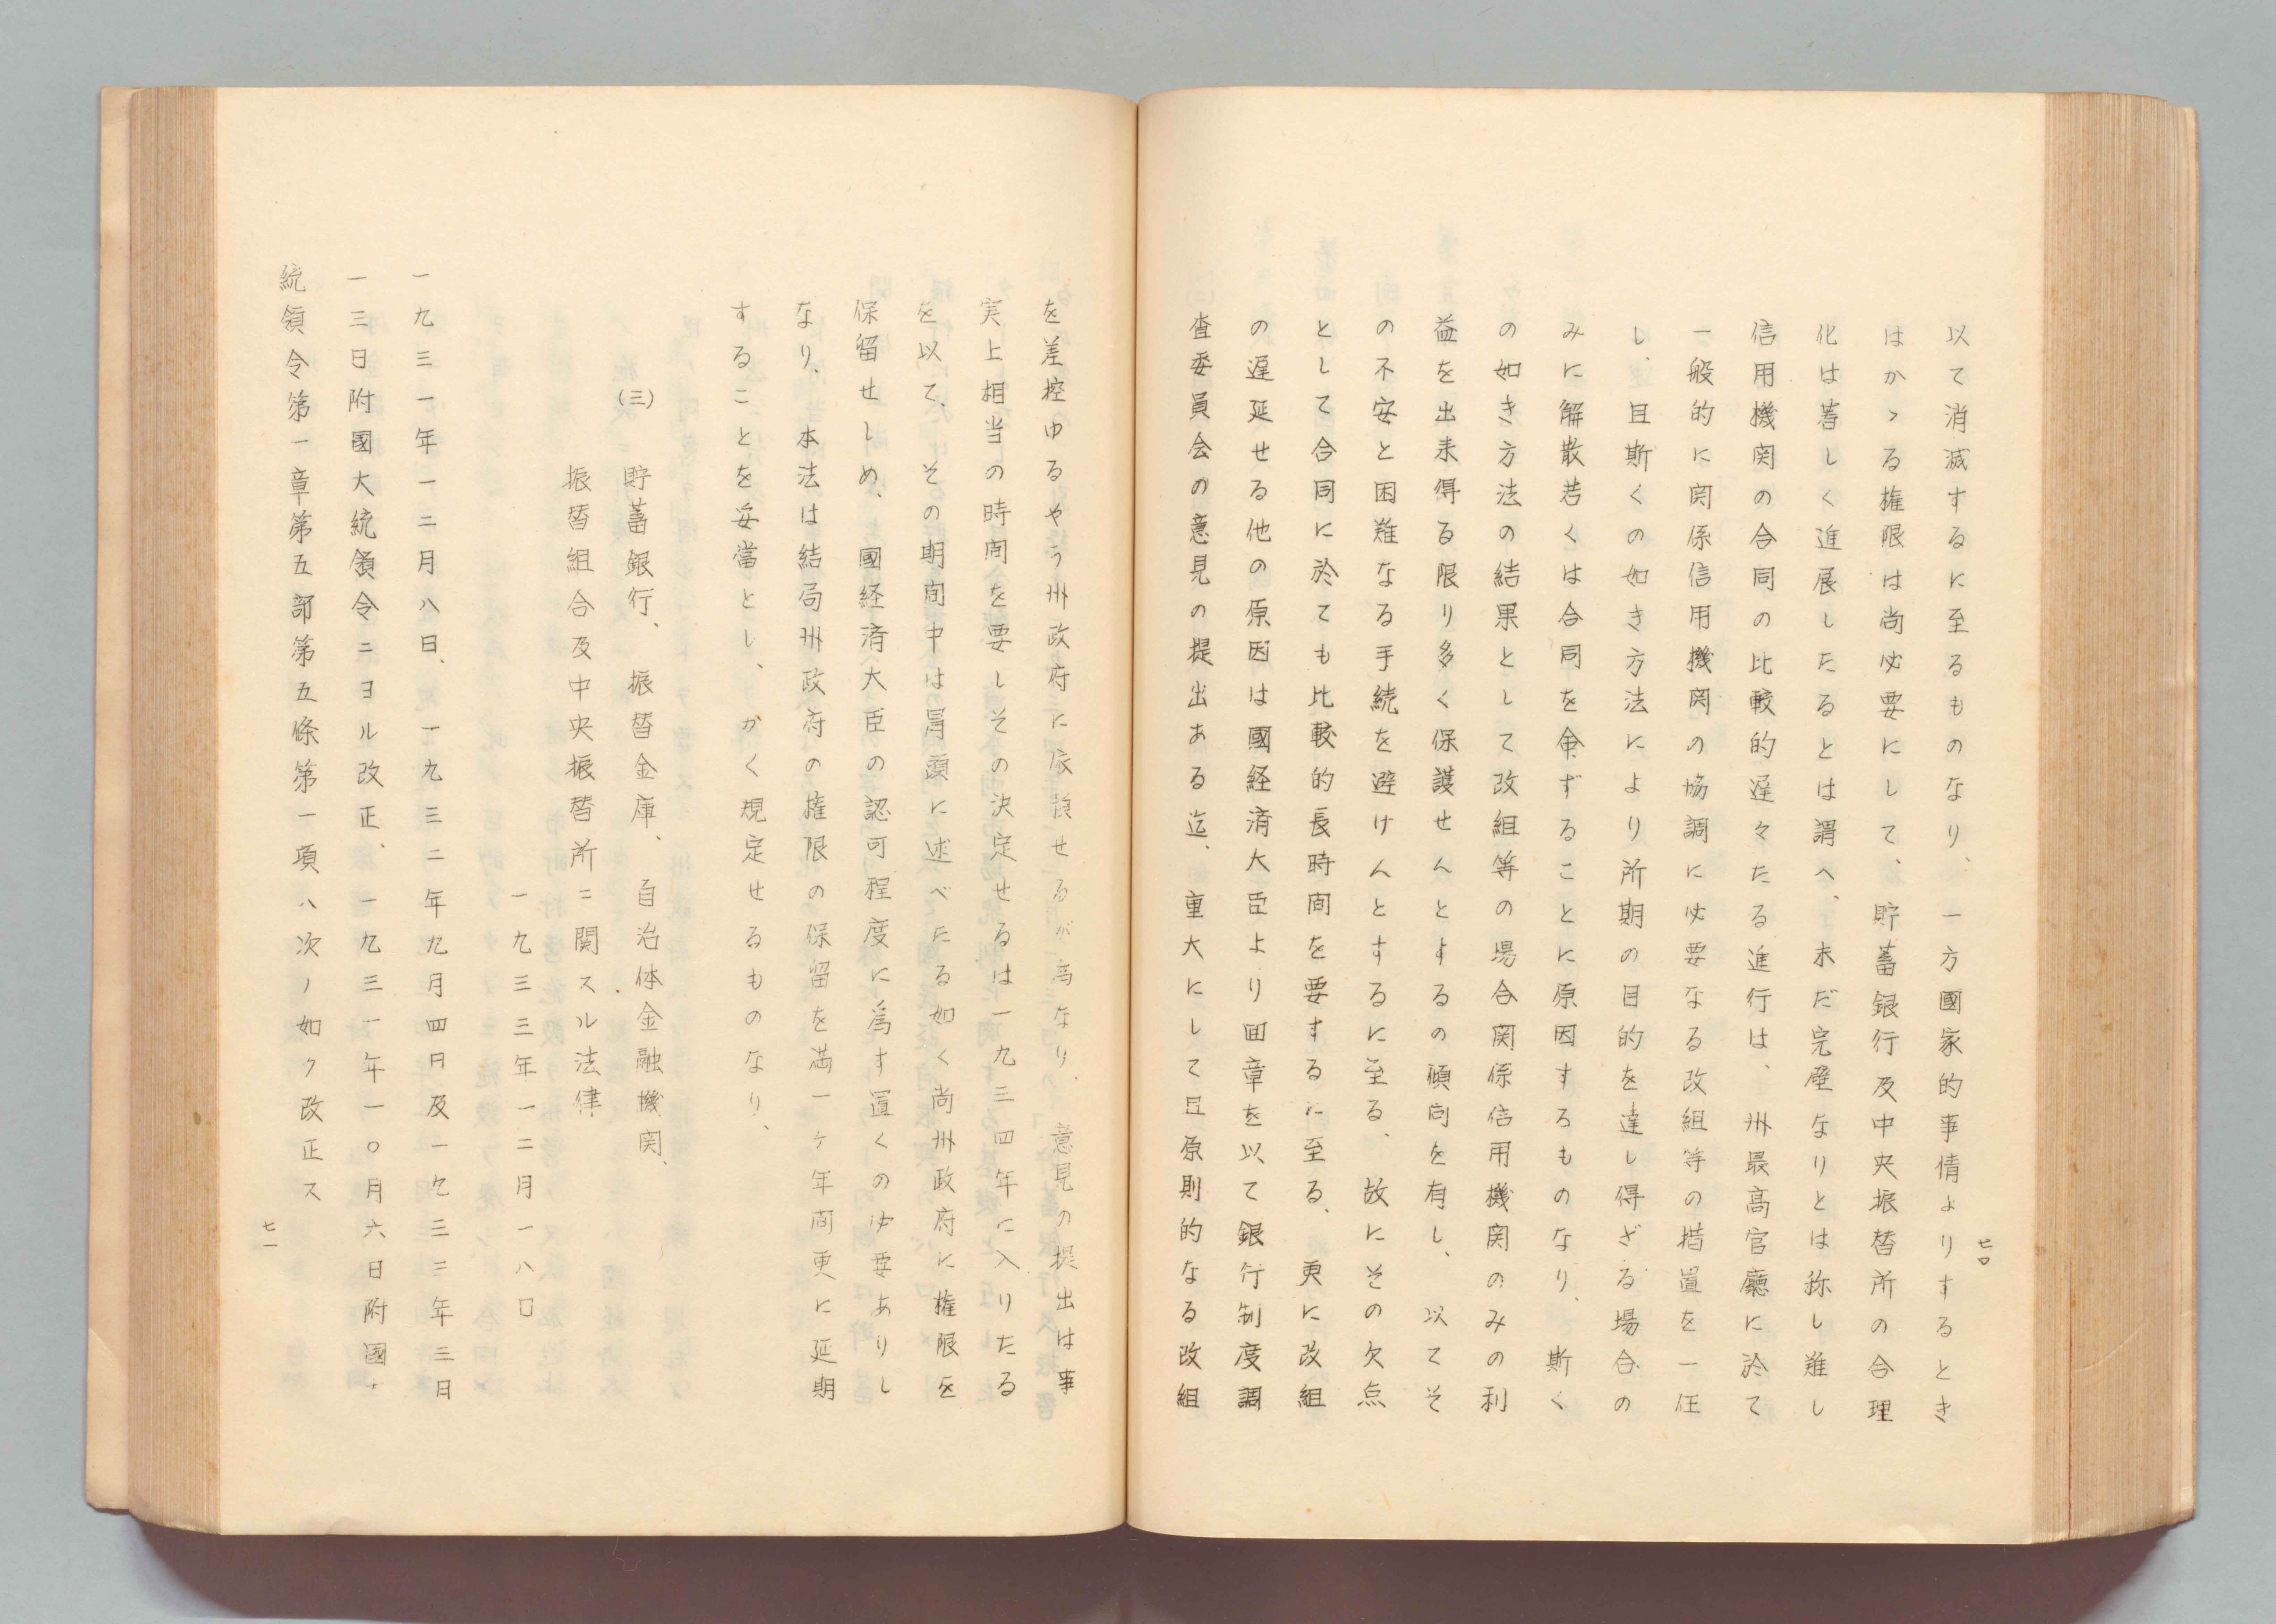 以て消滅するに至るものなり、一方國家的事情よりするとき
はかゝる権限は尚必要にして、貯蓄銀行及中央振替所の合理
化は著しく進展したるとは謂へ、未だ完璧なりとは称し難し
信用機関の合同の比較的遅々たる進行は、州最高官廳に於て
一般的に関係信用機関の協調に必要なる改組等の措置を一任
し、且斯くの如き方法により所期の目的を達し得ざる場合の
みに解散若くは合同を命ずることに原因するものなり、斯く
の如き方法の結果として改組等の場合関係信用機関のみの利
益を出来得る限り多く保護せんとするの傾向を有し、以てそ
の不安と困難なる手続を避けんとするに至る、故にその欠点
として合同に於ても比較的長時間を要するに至る、更に改組
の遅延せる他の原因は國経済大臣より回章を以て銀行制度調
査委員会の意見の提出ある迄、重大にして且原則的なる改組
七〇
を差控ゆるやう州政府に依頼せるが為なり、意見の提出は事
実上相当の時間を要しその決定せるは一九三四年に入りたる
を以て、その期間中は冒頭に述べたる如く尚州政府に権限を
保留せしめ、國経済大臣の認可程度に為す置くの必要ありし
なり、本法は結局州政府の権限の保留を満一ヶ年間更に延期
することを妥當とし、かく規定せるものなり、
(三) 貯蓄銀行、振替金庫、自治体金融機関、
振替組合及中央振替所ニ関スル法律
一九三三年一二月一八日
一九三一年一二月八日、一九三二年九月四日及一九三三年三日
一三日附國大統領令ニヨル改正、一九三一年一〇月六日附國大
統領令第一章第五部第五條第一項ハ次ノ如ク改正ス
七一